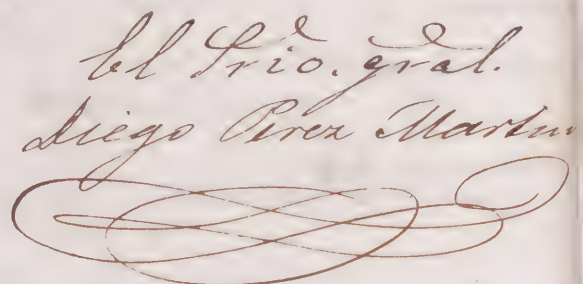 El Srio. gral.
Diego Perez Martin